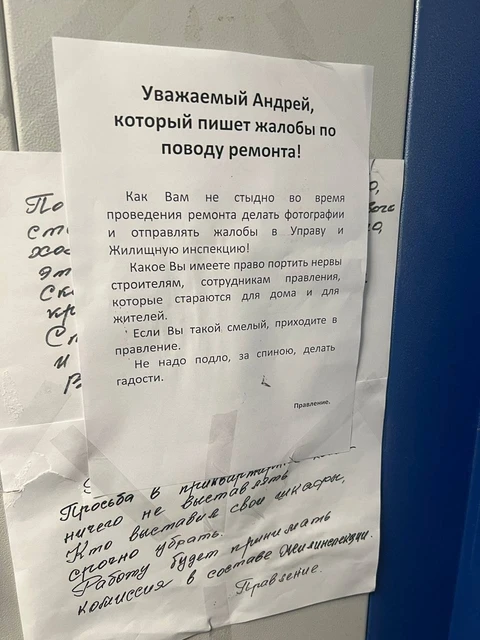 Уважаемый Андрей,
который пишет жалобы по
поводу ремонта!
Как Вам не стыдно во время
проведения ремонта делать фотографии
и отправлять жалобы в Управу и
Жилищную инспекцию!
Какое Вы имеете право портить нервы
строителям, сотрудникам правления,
которые стараются для дома и для
жителей.
Если Вы такой смелый, приходите в
правление.
Не надо подло, за спиною, делать
гадости.
Правление.
Просьба в
ничего не выставлять
Кто выставил свои шкафы,
срочно убрать.
Работу будет принимать
комиссия в составе Жилинспекции.
Правление.